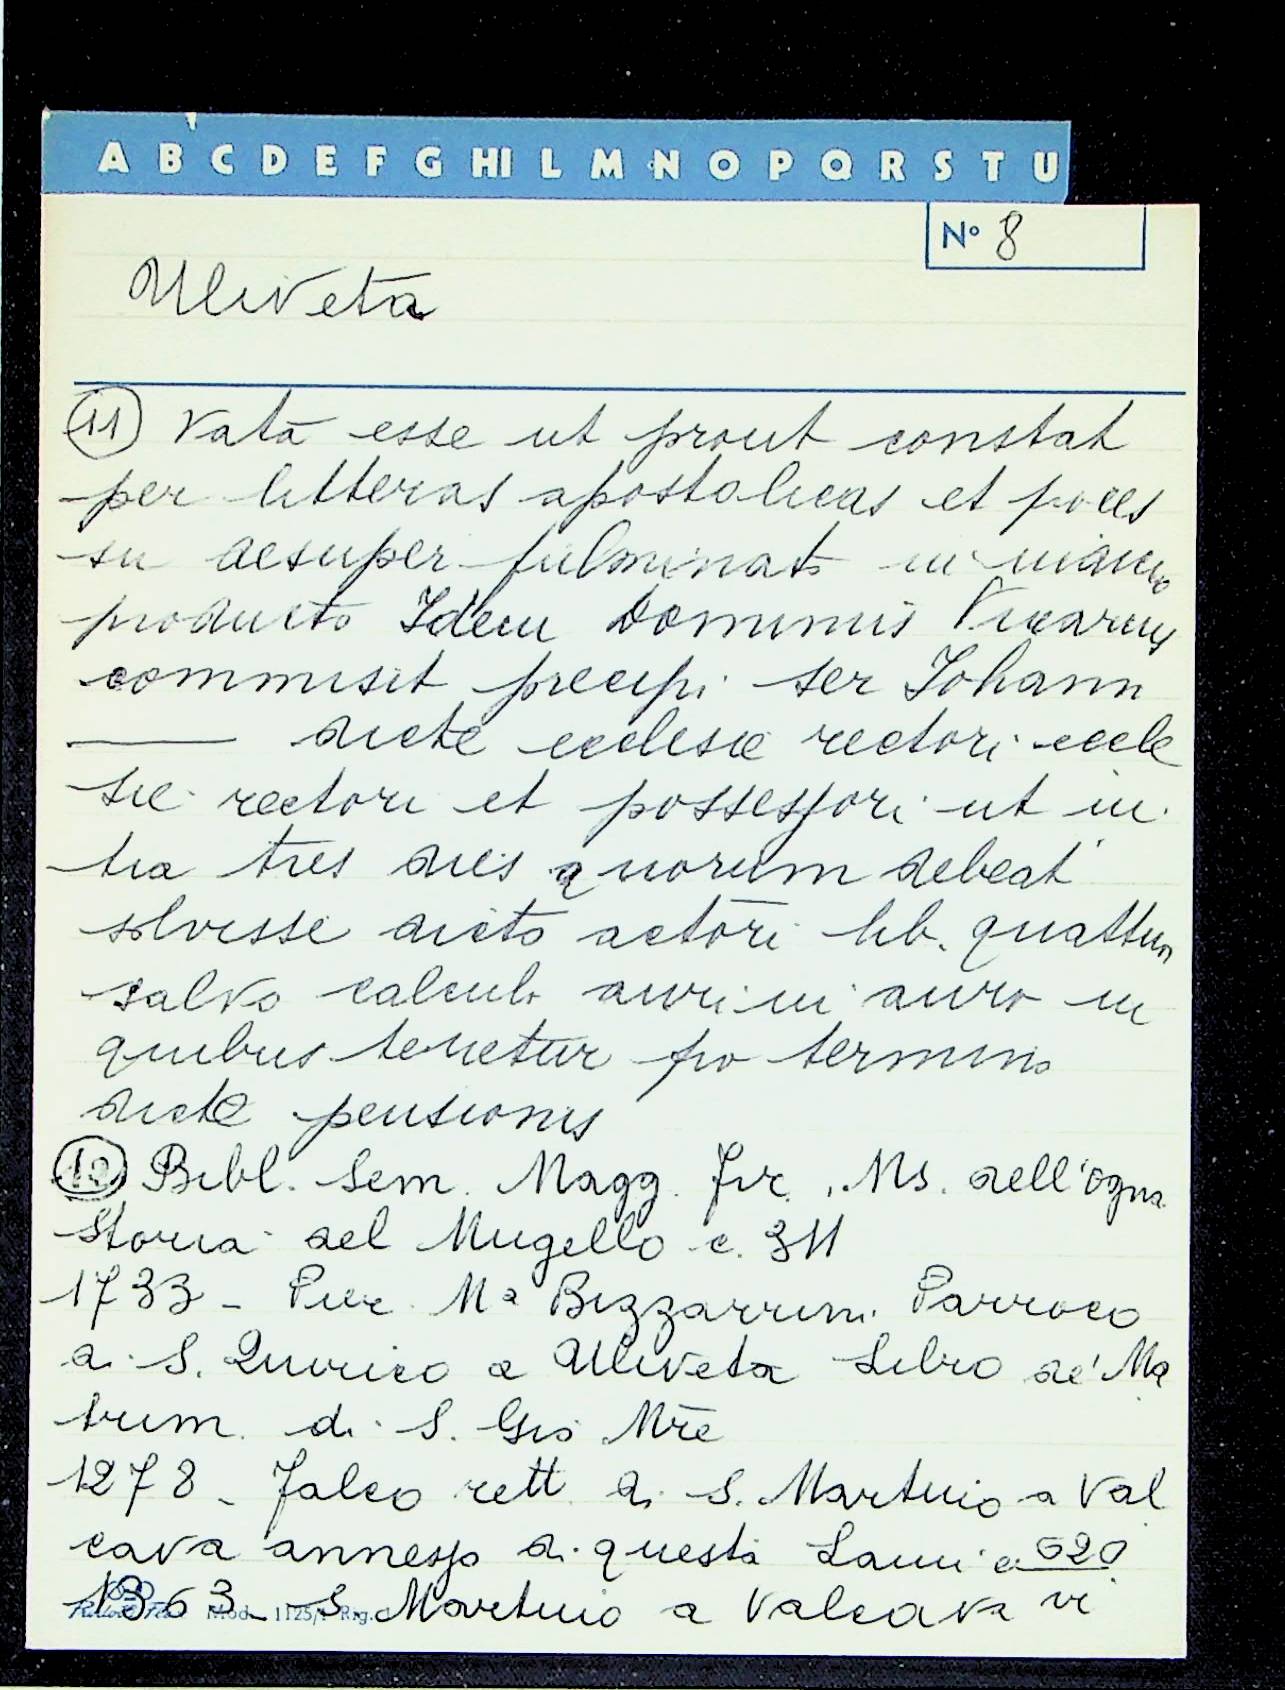 A B C D E F G HI L M N O P Q R S T U
Nº 8
Uliveta
(11) vata esse ut prout constat
per litteras apostolicas et proces
su desuper fulminato in
producto Idem Dominus Vicarius
commisit precipi ser Johann
dicte ecclesie rectori eccle
sie rectori et possessori ut in
tra tres dies quorum debeat
solvisse dicto actori lib. quattuor
salvo calculo auri in auro in
quibus tenetur pro termino
dicte pensionis
Bibl. Sem. Magg. Fir., Ms. dell'Ogna
Storia del Mugello c. 311
1733 - Pier Mª Bizzarrini Parroco
di S. Quirico a Uliveta Libro de' Ma
trim. di S. Gio Mre
1278 - Falco rett. di S. Martino a Val
cava annesso di questa Lami c. 620
1363 - S. Martino a Valcava vi
Mod. 1125/ Rig.